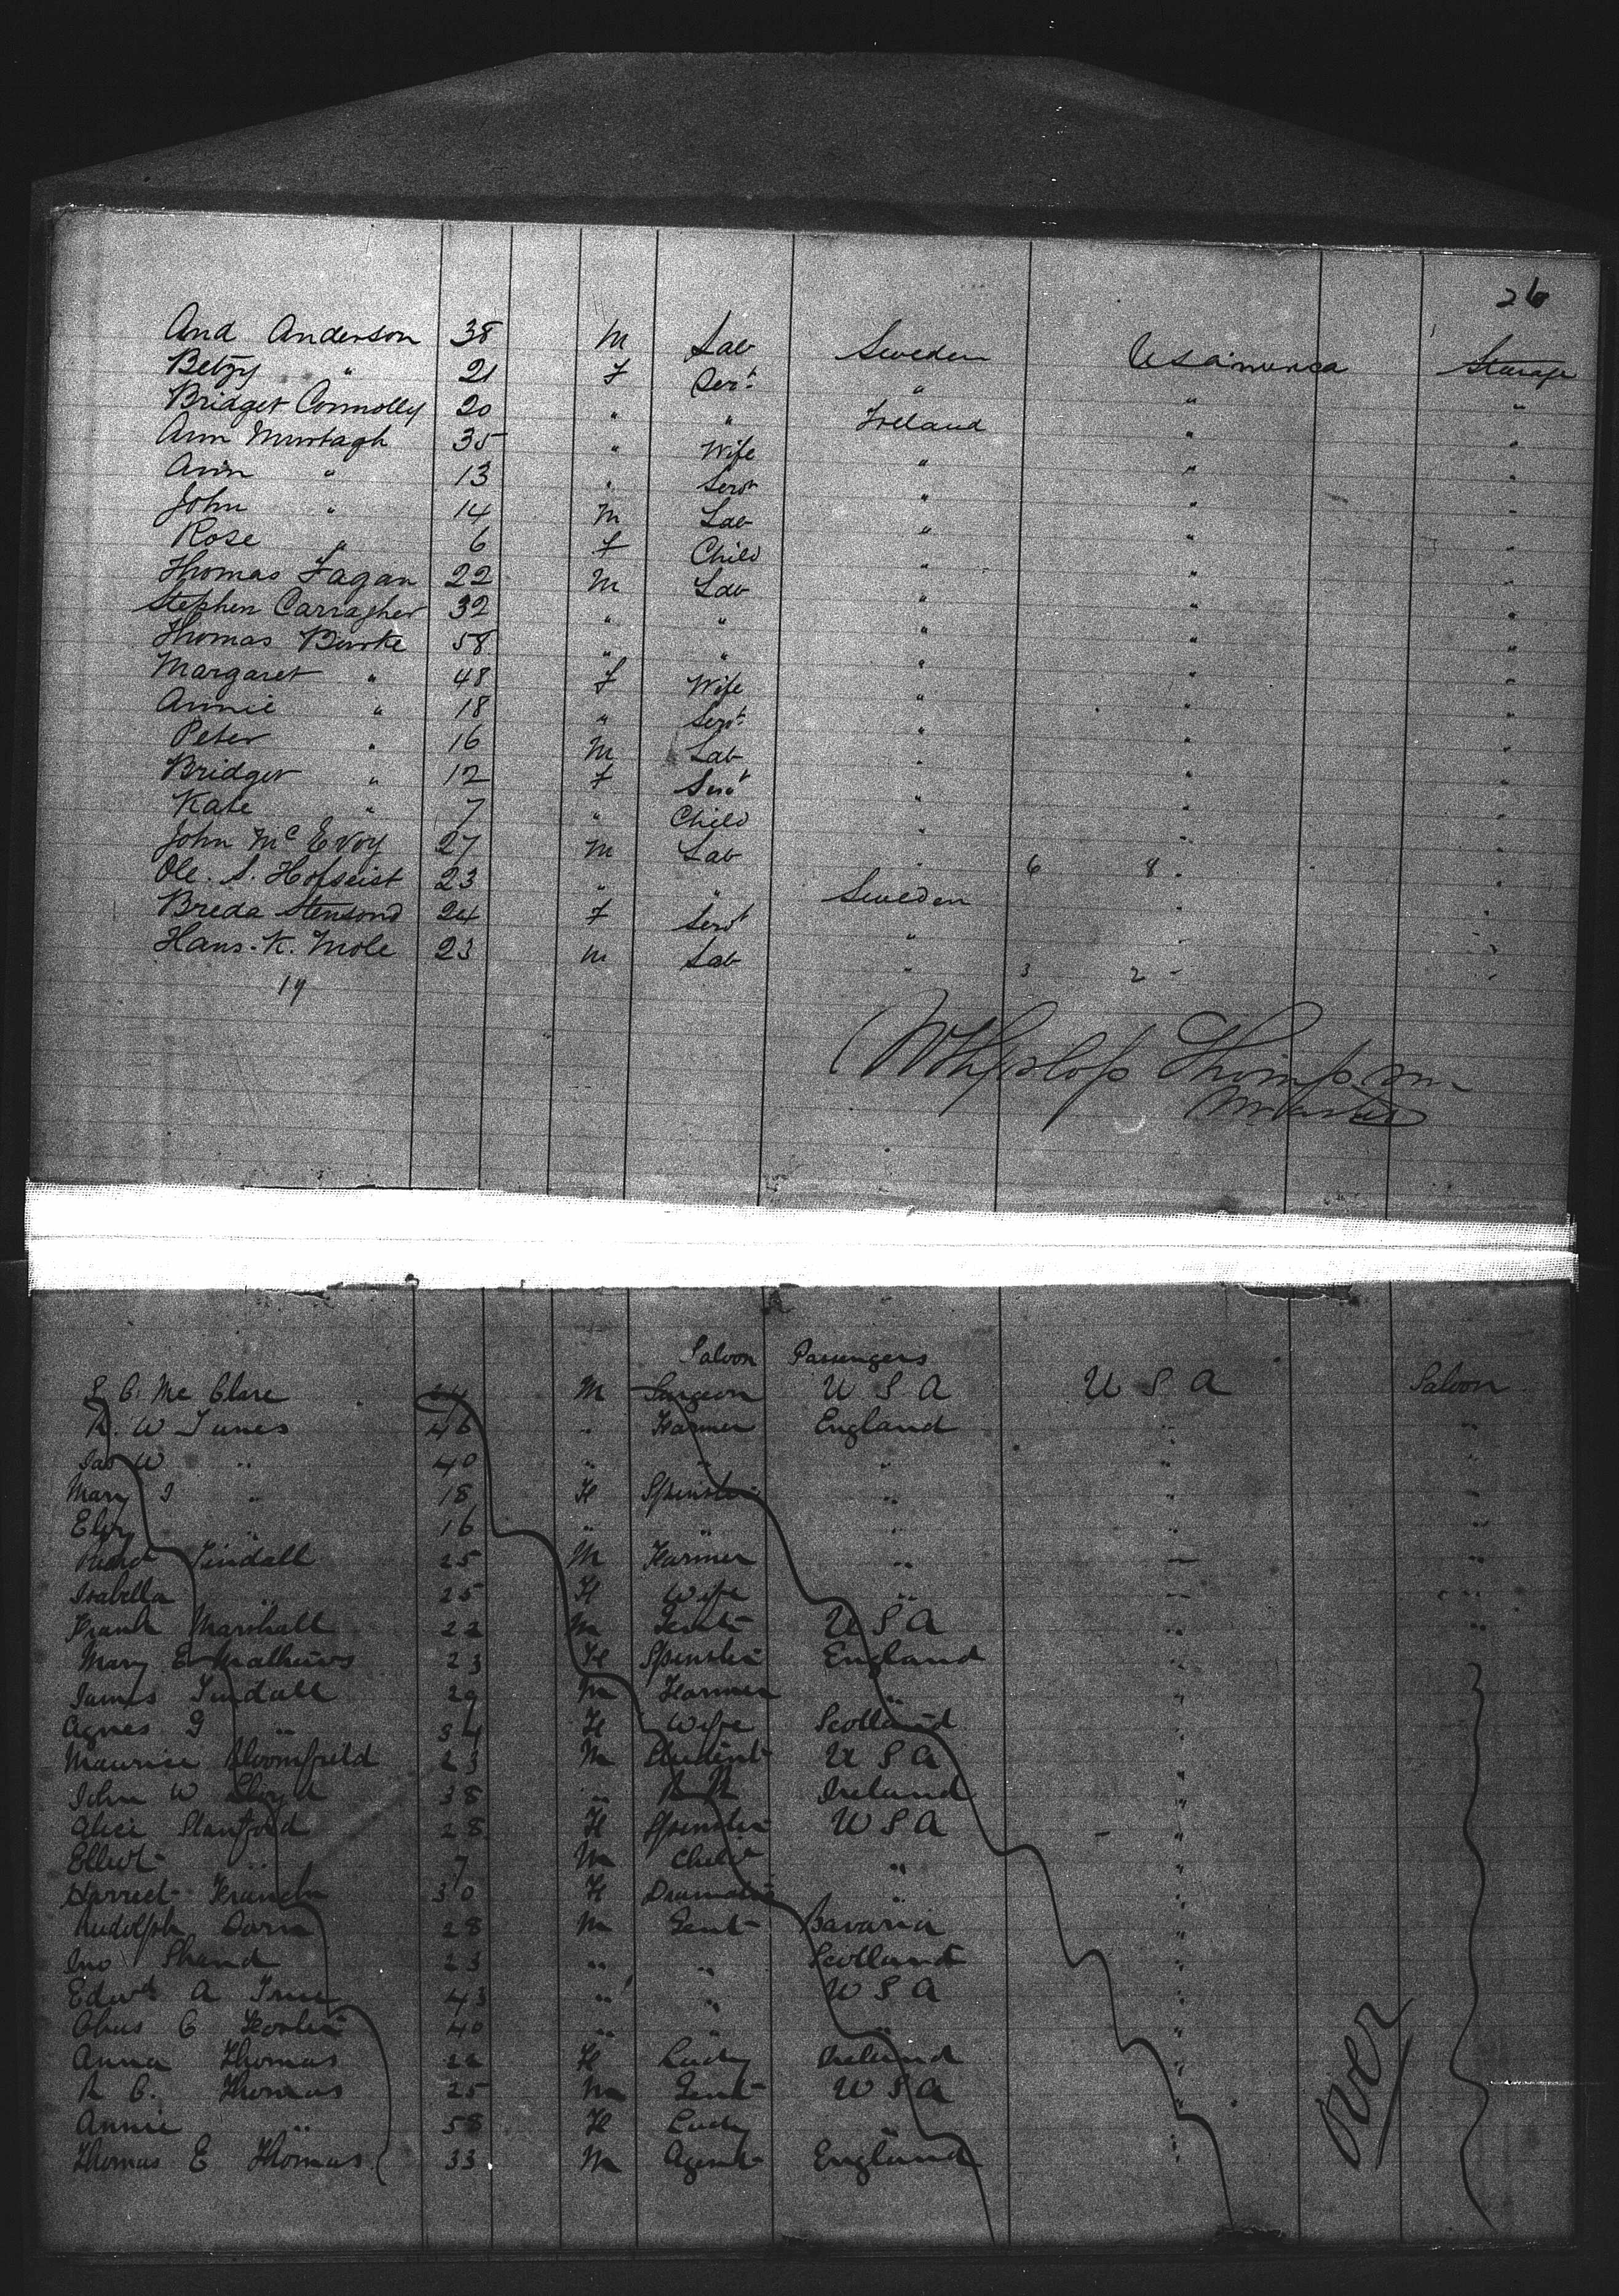 26
And Anderson 38 M Lab Sweden USAmerica Steerage
Betzy " 21 F Servt " " "
Bridget Connolly 20 " " Ireland " "
Ann Murtagh 35 " Wife " " "
Ann " 13 " Servt " " "
John " 14 M Lab " " "
Rose " 6 F Child " " "
Thomas Fagan 22 M Lab " " "
Stephen Carragher 32 " " " " "
Thomas Burke 58 " " " " "
Margaret " 48 F Wife " " "
Annie " 18 " Servt " " "
Peter " 16 M Lab " " "
Bridget " 12 F Servt " " "
Kate " 7 " Child " " "
John McEvoy 27 M Lab " 6 8 " "
Ole. S. Hofseist 23 " " Sweden " "
Breda Stensond 24 F Servt " " "
Hans. K. Mole 23 M Lab " 3 2 " "
19
Thompson
Master
Saloon Passengers
S C. Mc Clare 24 M Surgeon U S A U S A Saloon
R. W Tunes 46 " Farmer England " "
Jas W " 40 " " " " "
Mary I " 18 F Spinster " " "
Eliz " 16 " " " " "
Richd Tindall 25 M Farmer " " "
Isabella " 25 F Wife " " "
Frank Marshall 22 M Gent U S A " "
Mary E Mathews 23 F Spinster England "
James Tindall 29 M Farmer " "
Agnes G " 34 F Wife Scotland "
Maurice Bloomfield 23 M Student U S A "
John W Lloyd 38 " Ireland "
Alice Stantford 28 F Spinster U S A "
Elliot " 7 M Child " "
Harriet French 30 F Dramatic " "
Rudolph Dorn 28 M Gent Bavaria "
Jno Shand 23 " " Scotland "
Edwd A True 43 " " U S A "
Chas C 40 " " " "
Anna Thomas 22 F Lady Ireland "
R C. Thomas 25 M Gent U S A "
Annie " 58 F Lady "
Thomas E Thomas 33 M Agent England "
Over